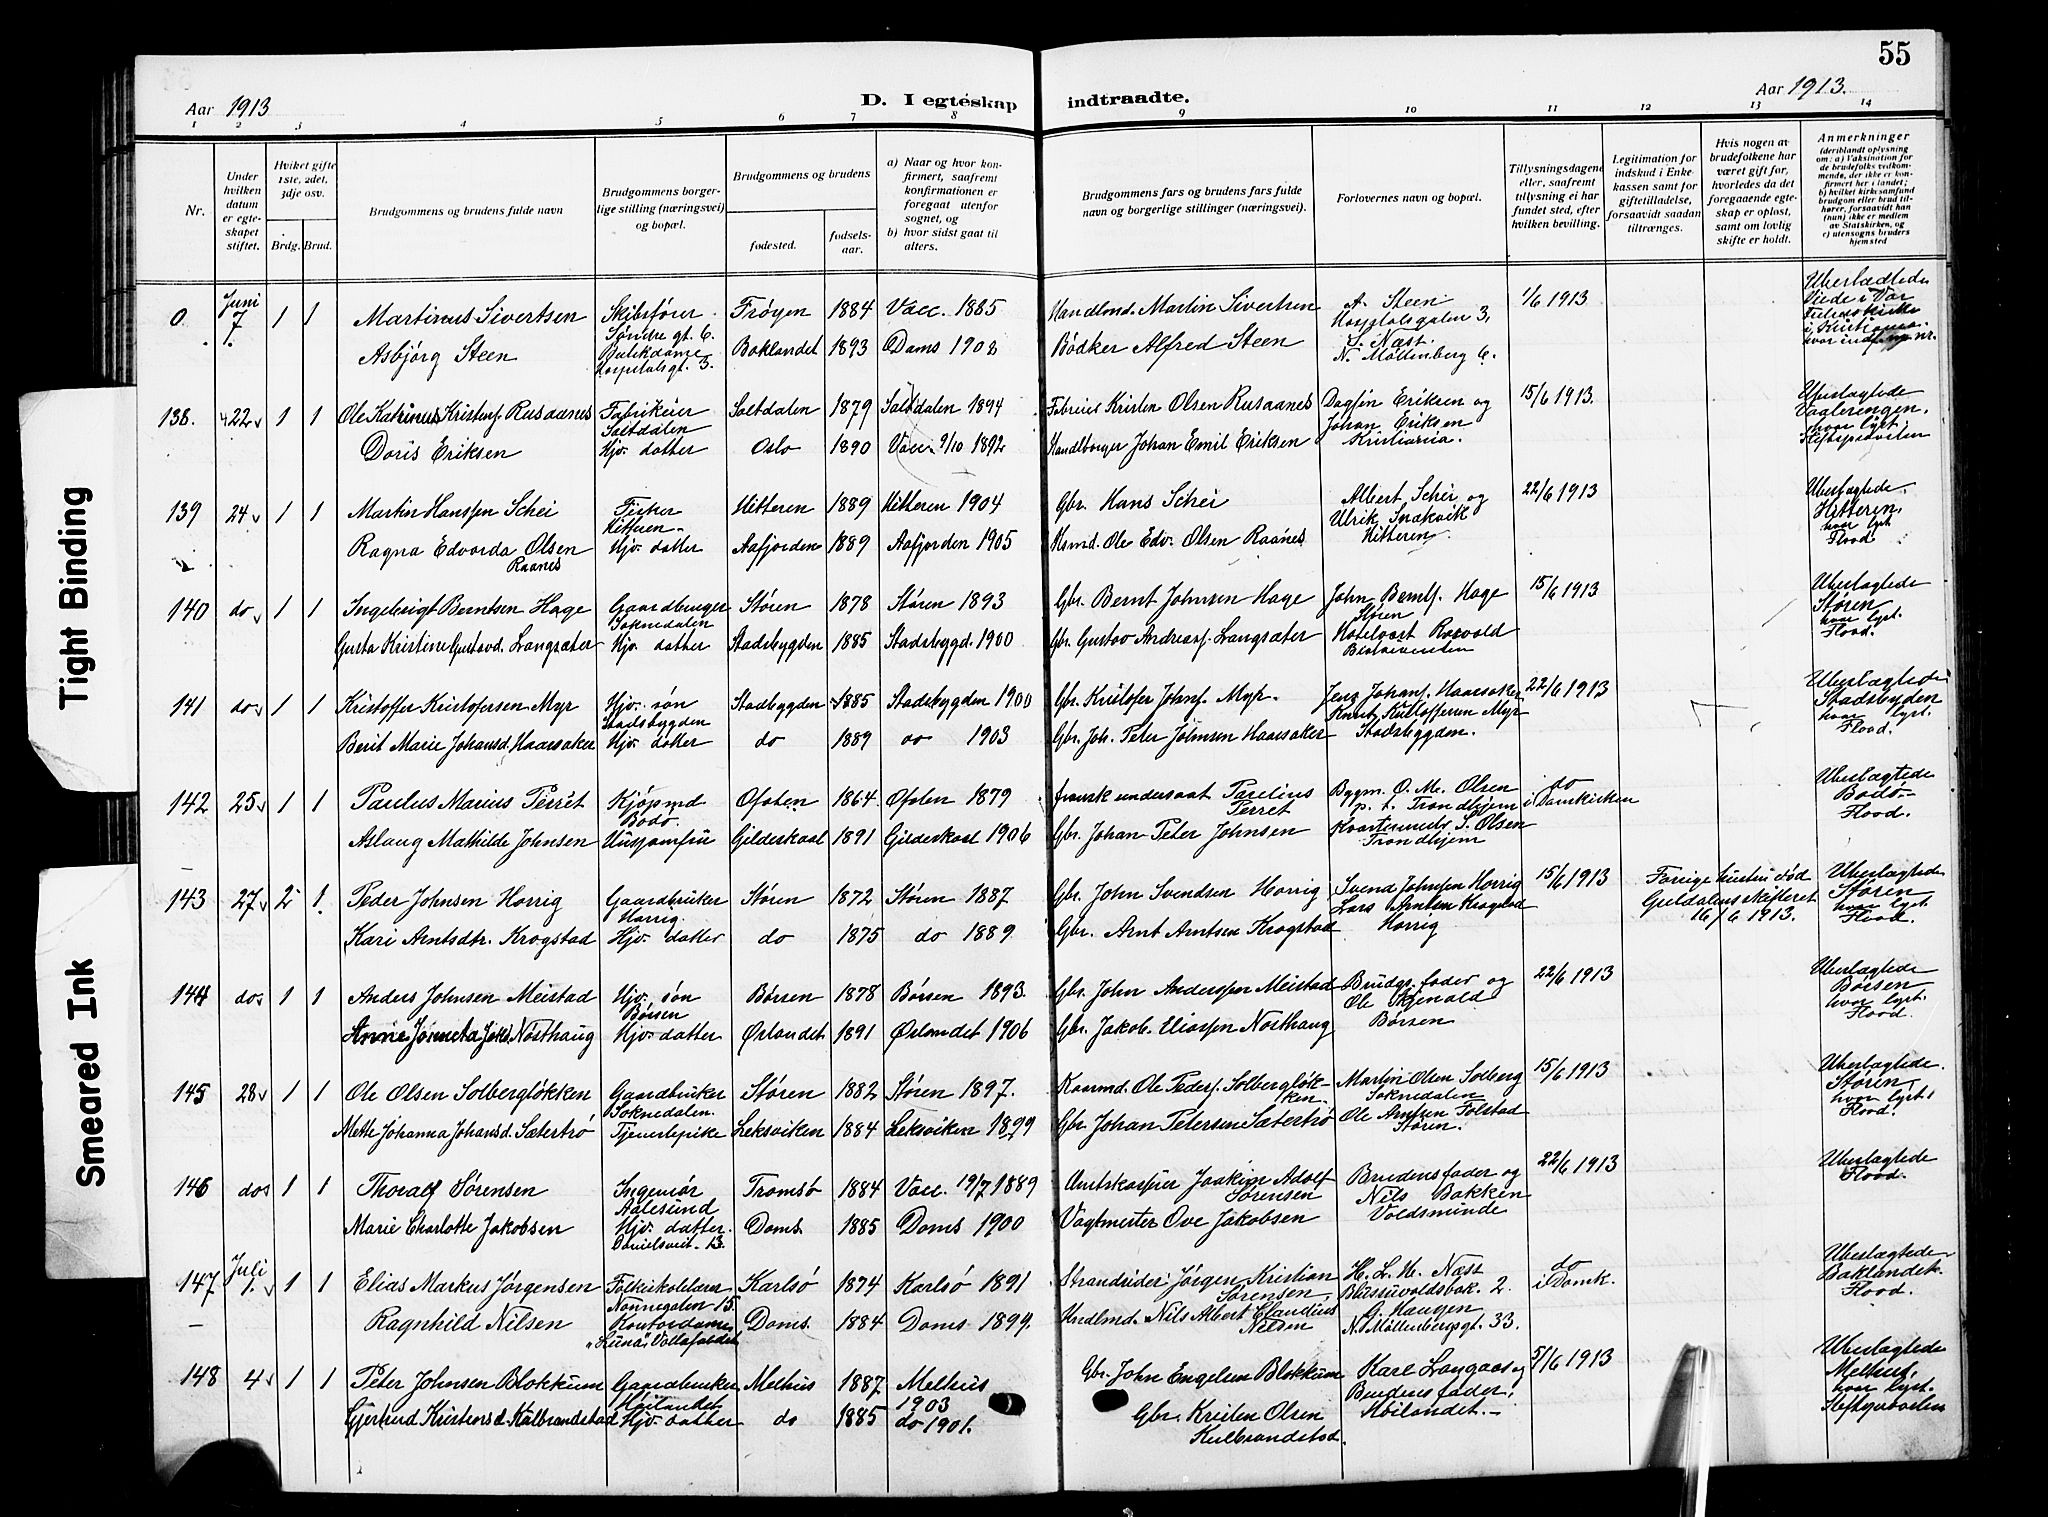 55
Aar 1913
D. I egteskap indtraadte.
Aar 1913.
1 2 3 4 5 6 7 8 9 10 11 12 13 14
Nr.
Under hvilken datum er egteskapet stiftet.
Hvilket gifte 1ste, 2det, 3dje osv.
Brdg. Brud.
Brudgommens og brudens fulde navn
Brudgommens borgerlige stilling (næringsvei) og bopæl.
Brudgommens og brudens
fødested.
fødselsaar.
a) Naar og hvor konfirmert, saafremt konfirmationen er foregaat utenfor sognet, og
b) hvor sidst gaat til alters.
Brudgommens fars og brudens fars fulde navn og borgerlige stillinger (næringsvei).
Forlovernes navn og bopæl.
Tillysningsdagene eller, saafremt tillysning ei har fundet sted, efter hvilken bevilling.
Legitimation for indskud i Enkekassen samt for giftetilladelse, forsaavidt saadan tiltrænges.
Hvis nogen av brudefolkene har været gift før, hvorledes da det foregaaende egteskap er opløst, samt om lovlig skifte er holdt.
Anmerkninger
(deriblandt oplysning om: a) Vaksination for de brudefolks vedkommende, der ikke er konfirmert her i landet; b) hvilket kirkesamfund brudgom eller brud tilhører, forsaavidt han (hun) ikke er medlem av Statskirken, og c) utensogns bruders hjemsted
0 Juni 7. 1 1 Martinus Sivertsen Skibsfører Søndre gt. 6. Frøyen 1884 Vacc. 1885 Handlmd. Martin Sivertsen A. Steen Hospitalsgaten 3, 1/6 1913
Asbjørg Steen Hospitalsgt. 3. Baklandet 1893 Doms 1908 Bødker Alfred Steen L. Næst. N. Møllenberg 6.
138. 22 1 1 Ole Katrinus Kristens. Rusaanes Fabrikeier Saltdalen Saltdalen 1879 Saltdalen 1894 Kristen Olsen Rusaanes Dagfin Eriksen og Johan Eriksen Kristiania. 15/6 1913.
Doris Eriksen Hjv. datter Oslo 1890 Vacc. 9/10 1892 Handlborger Johan Emil Eriksen
139 24 1 1 Martin Hanssen Schei Fisker Hitteren Hitteren 1889 Hitteren 1904 Gbr. Hans Schei Albert Schei og Ulrik Snekvik Hitteren 22/6 1913 Uberlagtede Hitteren, hvor lyst. Flood
Ragna Edvarda Olsen Raanes Hjv. datter Aafjorden 1889 Aafjorden 1905 Hsmd. Ole Edv. Olsen Raanes
140 do 1 1 Ingebrigt Berntsen Hage Gaardbruger Soknedalen Støren 1878 Støren 1893 Gbr. Bernt Johnsen Hage John Bernts. Hage Støren 15/6 1913 Støren hvor lyst. Flood.
Gusta Kristine Gustavd. Langsæter Hjv. datter Stadsbygden 1885 Stadsbygd. 1900 Gbr. Gustav Andreass. Langsæter
141 do 1 1 Kristoffer Kristofersen Myr Hjv. søn Stadsbygden Stadbygden 1885 Stadsbygden 1900 Gbr. Kristofer Johns. Myr. Jens Johans. Haarsaker Kristoffersen Myr Stadsbygden. 22/6 1913 Stadsbyden hvor lyst. Flood.
Berit Marie Johansd. Haarsaker Hjv. datter do 1889 do 1903 Gbr. Joh. Peter Johnsen Haarsaker
142 25 1 1 Paulus Marius Perret Kjøpmd Bodø. Ofoten 1864 Ofoten 1879 fransk undersaat Perret Bygm. O. M. Olsen p. t. Trondhjem do i Domkirken Bodø. Flood.
Aslaug Mathilde Johnsen Husjomfru Gildeskaal 1891 Gildeskaal 1906 Gbr. Johan Peter Johnsen S. Olsen Trondhjem
143 27 2 1 Peder Johnsen Horrig Gaardbruker Horrig. Støren 1872 Støren 1887 Gbr. John Svendsen Horrig Svend Johnsen Horrig Lars Arntsen Krogstad Horrig 15/6 1913 Forrige hustru død Guldalens skifteret 16/6 1913. Støren hvor lyst Flood.
Kari Arntsdtr. Krogstad Hjv. datter do 1875 do 1889 Gbr. Arnt Arntsen Krogstad
144 do 1 1 Anders Johnsen Meistad Hjv. søn Børsen Børsen 1878 Børsen 1893. Gbr. John Anderssen Meistad Brudgs. fader og Ole Skjenald Børsen 22/6 1913 Børsen hvor lyst. Flood.
Nosthaug Hjv. datter Ørlandet 1891 Ørlandet 1906 Gbr. Jakob Eliassen Nosthaug
145 28 1 1 Ole Olsen Solbergløkken Gaardbruker Soknedalen. Støren 1882 Støren 1897. Ole Peders. Solbergløkken. Martin Olsen Solberg Soknedalen 15/6 1913 Støren hvor lyst. Flood.
Mette Johanna Johansd. Sæterstrø Tjenestepike Leksviken 1884 Leksviken 1899 Gbr. Johan Petersen Sæterstrø Ole Arntsen Folstad Støren.
146 do 1 1 Thoralf Sørensen Ingeniør Aalesund Tromsø 1884 Vacc. 19/7 1889 Amtskasserer Joakim Adolf Sørensen Brudens fader og Nils Bakken Voldsminde 22/6 1913 Flood.
Marie Charlotte Jakobsen Hjv. datter. Doms. 1885 Doms 1900 Vagtmester Ove Jakobsen
147 Juli 1. 1 1 Elias Markus Jørgensen Nonnegaten 15. Karlsø 1874 Karlsø 1891 Strandsider Jørgen Kristian Sørensen H. L. H. Næst 2. do i Domk. Baklandet. Flood.
Ragnhild Nilsen Kontordame Doms. 1884 Doms 1899. Handlmd. Nils Albert Claudius Nilsen G. Haugen N. Møllenbergsgt. 33.
148 4 1 1 Peter Johnsen Blokkum Gaardbruker Høilandet Melhus 1887 Melhus 1903 Gbr. John Engelsen Blokkum Karl Langaas og Brudens fader, Høilandet. 5/6 1913 Melhus, hvor lyst.
Gjertrud Kristensd. Kulbrandstad Hjv. datter do 1885 do 1901. Gbr. Kristen Olsen Kulbrandstad.
Tight Binding
Smeared Ink